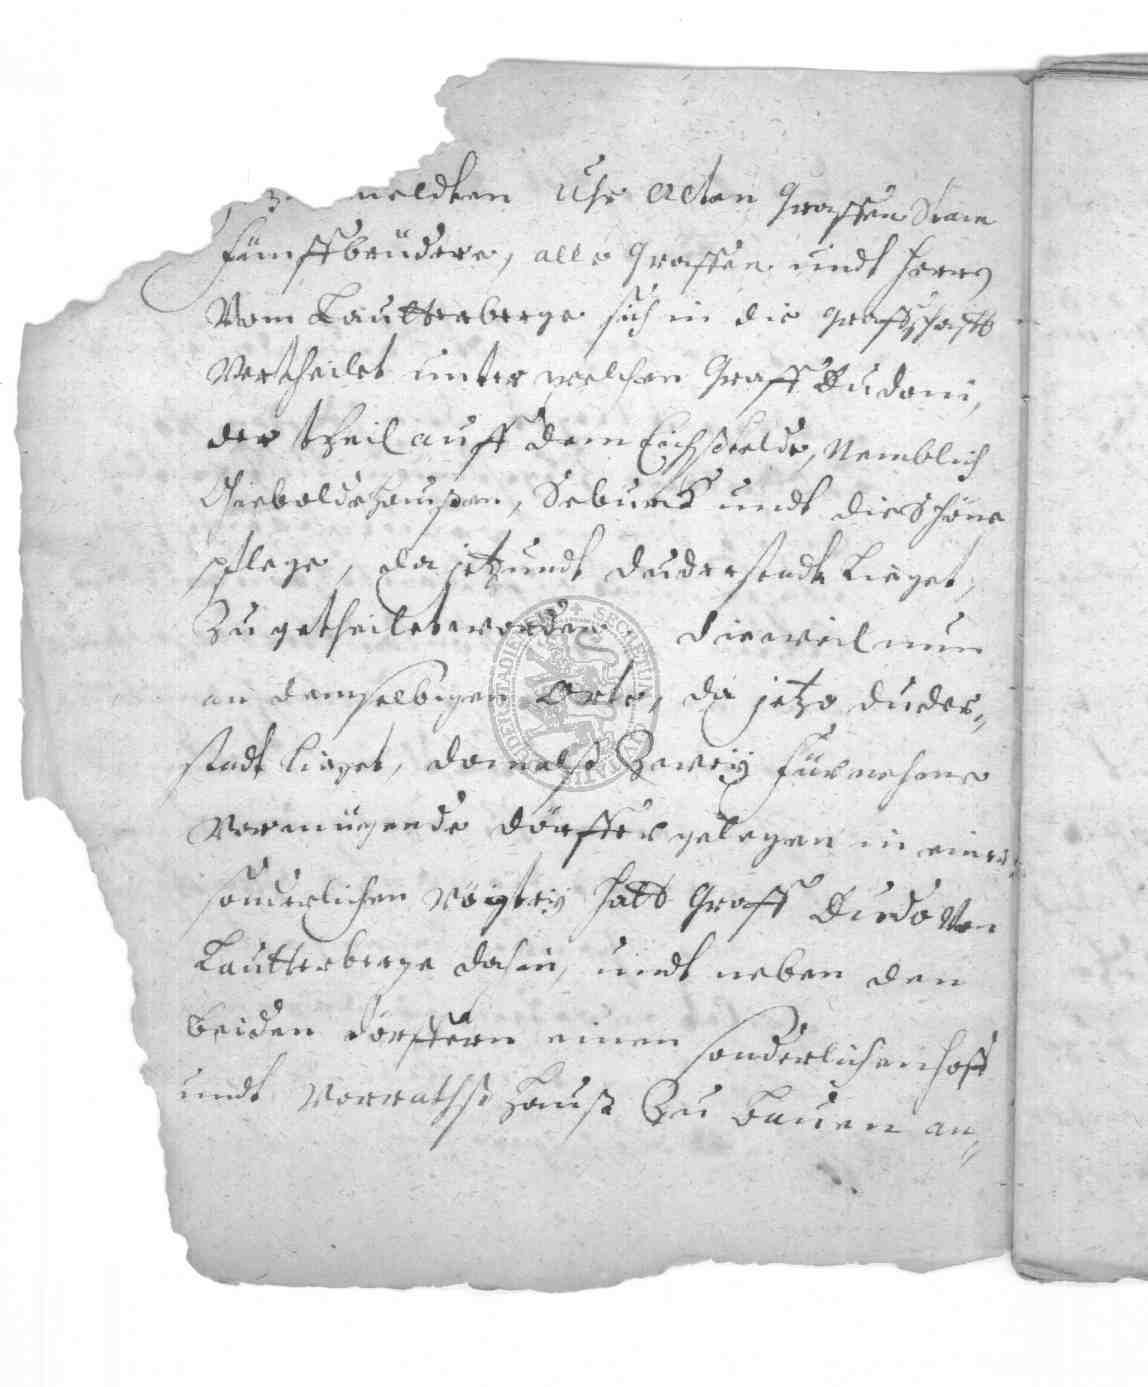 meldten Uhr Alten Graffen Stam
fünff brüdere, alle Graffen undt Herrn
Vom Lautterberge sich in die graffschafft
Vertheilet unter welchen Graff Dudoni,
der theil auff dem Eichßfelde, Nemblich
Gieboldehaußen, Seburck undt die Schöne
pflege, da jetzundt Duderstadt lieget,
Zu getheilet worden. Dieweil nun
an demselbigen Orte, da jetzo Duder,,
stadt lieget, domalß Zwey fürnehme
Vermügende dörffer gelegen in einer
sonderlichen Vögtey hatt Graff Dudo Von
Lautterberge dahin, undt neben den
beiden dörffern einen sonderlichen hoff
undt Vorrathß Hauß Zu bauen an,,